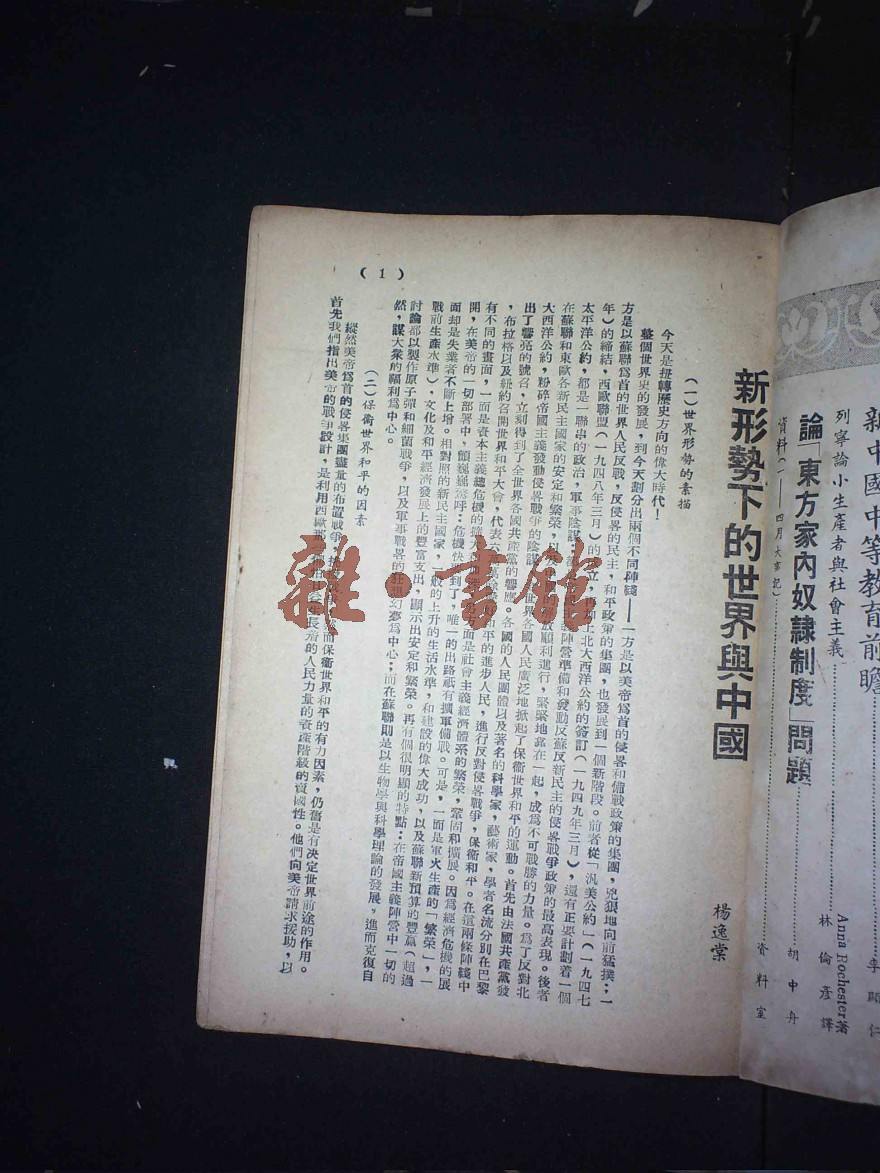 新中國中等教育前瞻
李
仁
列寧論小生產者與社會主義
Anna Rochester著
林倫彥譯
論「東方家內奴隷制度」問題
胡中舟
資料(一——四月大事記)
資料室
新形勢下的世界與中國
楊逸棠
(一)世界形勢的素描
今天是扭轉歷史方向的偉大時代!
整個世界史的發展,到今天劃分出兩個不同陣綫——一方是以美帝爲首的侵畧和備戰政策的集團,兇狠地向前猛撲;一
方是以蘇聯爲首的世界人民反戰,反侵畧的民主,和平政策的集團,也發展到一個新階段。前者從「汎美公約」(一九四七
年)的締結,西歐聯盟(一九四八年三月)的立,北大西洋公約的簽訂(一九四九年三月),還有正要計劃着一個
太平洋公約,都是一聯串的政治,軍事陰謀,陣營準備和發動反蘇反新民主的侵畧戰爭政策的最高表現。後者
在蘇聯和東歐各新民主國家的安定和繁榮,以放順利進行,緊緊地靠在一起,成爲不可戰勝的力量。爲了反對北
大西洋公約,粉碎帝國主義發動侵畧戰爭的陰謀,世界各國人民廣泛地掀起了保衞世界和平的運動。首先由法國共產黨發
出了響亮的號召,立刻得到了全世界各國共產黨的響應。各國的人民團體以及著名的科學家,藝術家,學者名流分別在巴黎
,布拉格以及紐約召開世界和平大會,代表六萬和平的進步人民,進行反對侵畧戰爭,保衞和平。在這兩條陣綫中
有不同的畫面,一面是資本主義總危機的擴大方面是社會主義經濟體系的繁榮,鞏固和擴展。因爲經濟危機的展
開,在美帝的一切部署中,顫巍巍驚呼:危機快到了,唯一的出路祇有擴軍備戰。可是,一面是軍火生產的「繁榮」,一
面却是失業者不斷上增。相對照的新民主國家,一般的上升的生活水準,和建設的偉大成功,以及蘇聯新預算的豐贏(超過
戰前生產水準),文化及和平經濟發展上的豐富支出,顯示出安定和繁榮。再有個很明顯的特點:在帝國主義陣營中一切的
討論都以製作原子彈和細菌戰爭,以及軍事戰畧的狂想幻夢爲中心;而在蘇聯則是以生物學與科學理論的發展,進而克復自
然,謀大衆的福利爲中心。
(二)保衞世界和平的因素
縱然美帝爲首的侵畧集團盡量的布置戰爭,而保衞世界和平的有力因素,仍舊是有决定世界前途的作用。
首先我們指出美帝的戰爭設計,是利用西歐那日益生長着的人民力量的資產階級的賣國性。他們向美帝請求援助,以
(1)
雜·書館